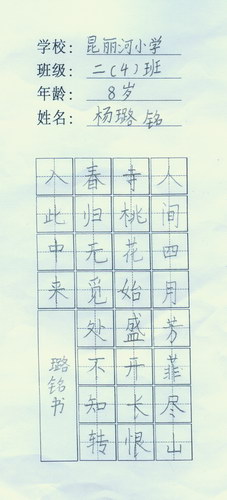 学校: 昆丽河小学
班级: 二(4)班
年龄: 8岁
姓名: 杨璐铭
人间四月芳菲尽山
寺桃花始盛开长恨
春归无觅处不知转
入此中来
璐铭书